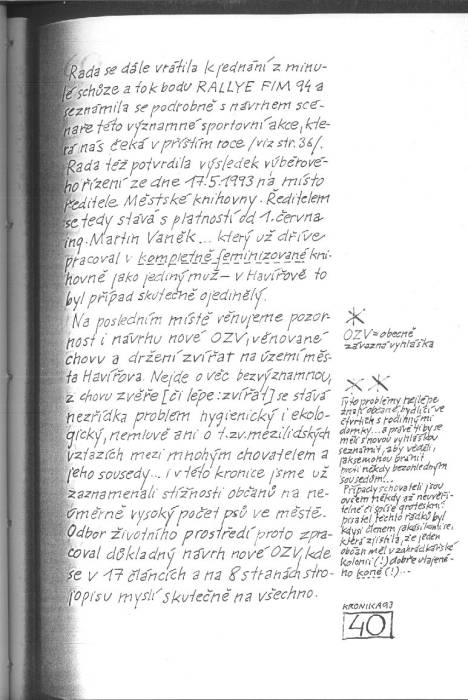 Rada se dále vrátila k jednání z minu-
lé schůze a to k bodu RALLYE FIM 94 a
seznámila se podrobně s návrhem scé-
náře této významné sportovní akce, kte-
rá nás čeká v příštím roce /viz str. 36/.
Rada též potvrdila výsledek výběrové-
ho řízení ze dne 17.5.1993 na místo
ředitele Městské knihovny. Ředitelem
se tedy stává s platností od 1. června
ing. Martin Vaněk... který už dříve
pracoval v kompletně feminizované kni-
hovně jako jediný muž – v Havířově to
byl případ skutečně ojedinělý.
Na posledním místě věnujeme pozor-
nost i návrhu nové OZV, věnované
chovu a držení zvířat na území měs-
ta Havířova. Nejde o věc bezvýznamnou,
z chovu zvěře [či lépe: zvířat] se stává
nezřídka problém hygienický i ekolo-
gický, nemluvě ani o t.zv. mezilidských
vztazích mezi mnohým chovatelem a
jeho sousedy... i v této kronice jsme už
zaznamenali stížnosti občanů na ne-
úměrně vysoký počet psů ve městě.
Odbor životního prostředí proto zpra-
coval důkladný návrh nové OZV, kde
se v 17 článcích a na 8 stranách stro-
jopisu myslí skutečně na všechno.
*
OZV = obecně
závazná vyhláška
* *
Tyto problémy nejlépe
znají občané, bydlící ve
čtvrtích s rodinnými
domky... a právě ti by se
měli s novou vyhláškou
seznámit, aby věděli,
jak se mohou bránit
proti někdy bezohledným
sousedům...
Případy s chovateli jsou
ovšem někdy až neuvěři-
telné či spíše groteskní:
pisatel těchto řádků byl
kdysi členem jakési komise,
která zjistila, že jeden
občan měl v zahrádkářské
kolonii (!) dobře utajené-
ho koně (!)...
KRONIKA 93
40